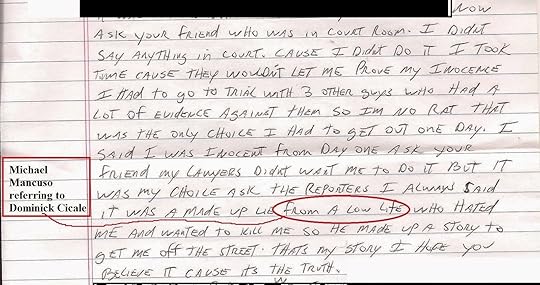 NOW
ASK YOUR FRIEND WHO WAS IN COURT ROOM. I DIDNT
SAY ANYTHING IN COURT. CAUSE I DIDNT DO IT I TOOK
TIME CAUSE THEY WOULDN'T LET ME PROVE MY INOCENCE
I HAD TO GO TO TRIAL WITH 3 OTHER GUYS WHO HAD A
LOT OF EVIDENCE AGAINST THEM SO IM NO RAT THAT
WAS THE ONLY CHOICE I HAD TO GET OUT ONE DAY. I
SAID I WAS INOCENT FROM DAY ONE ASK YOUR
FRIEND MY LAWYERS DIDNT WANT ME TO DO IT BUT IT
WAS MY CHOICE ASK THE REPORTERS I ALWAYS SAID
IT WAS A MADE UP LIE FROM A LOW LIFE WHO HATED
ME AND WANTED TO KILL ME SO HE MADE UP A STORY TO
GET ME OFF THE STREET. THATS MY STORY I HOPE YOU
BELIEVE IT CAUSE ITS THE TRUTH.
Michael
Mancuso
referring to
Dominick Cicale